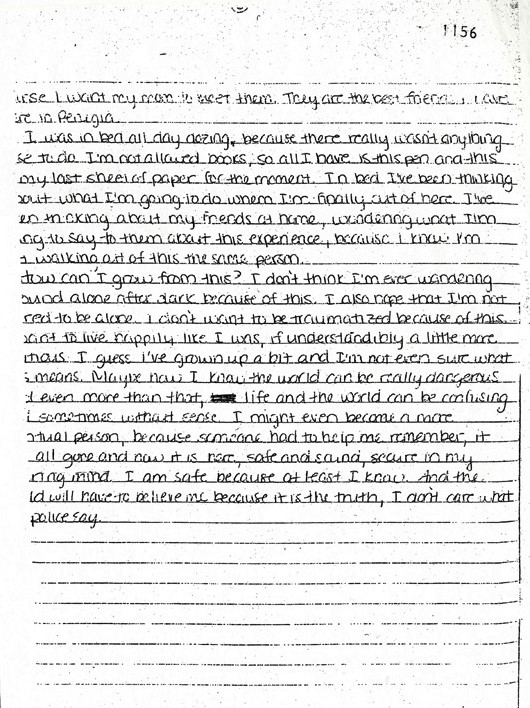 1156
urse I want my mom to meet them. They are the best friends I have
re in Perugia.
I was in bed all day dozing, because there really wasn't anything
se to do. I'm not allowed books, so all I have is this pen and this
my last sheet of paper for the moment. In bed I've been thinking
out what I'm going to do when I'm finally out of here. I've
en thinking about my friends at home, wondering what I'm
ng to say to them about this experience, because I know I'm
t walking out of this the same person.
How can I grow from this? I don't think I'm ever wandering
ound alone after dark because of this. I also hope that I'm not
red to be alone. I don't want to be traumatized because of this.
want to live happily like I was, if understandibly a little more
tious. I guess I've grown up a bit and I'm not even sure what
s means. Maybe now I know the world can be really dangerous
d even more than that, life and the world can be confusing
d sometimes without sense. I might even become a more
itual person, because someone had to help me remember, it
all gone and now it is here, safe and sound, secure in my
ring mind. I am safe because at least I know. And the
ld will have to believe me because it is the truth, I don't care what
police say.